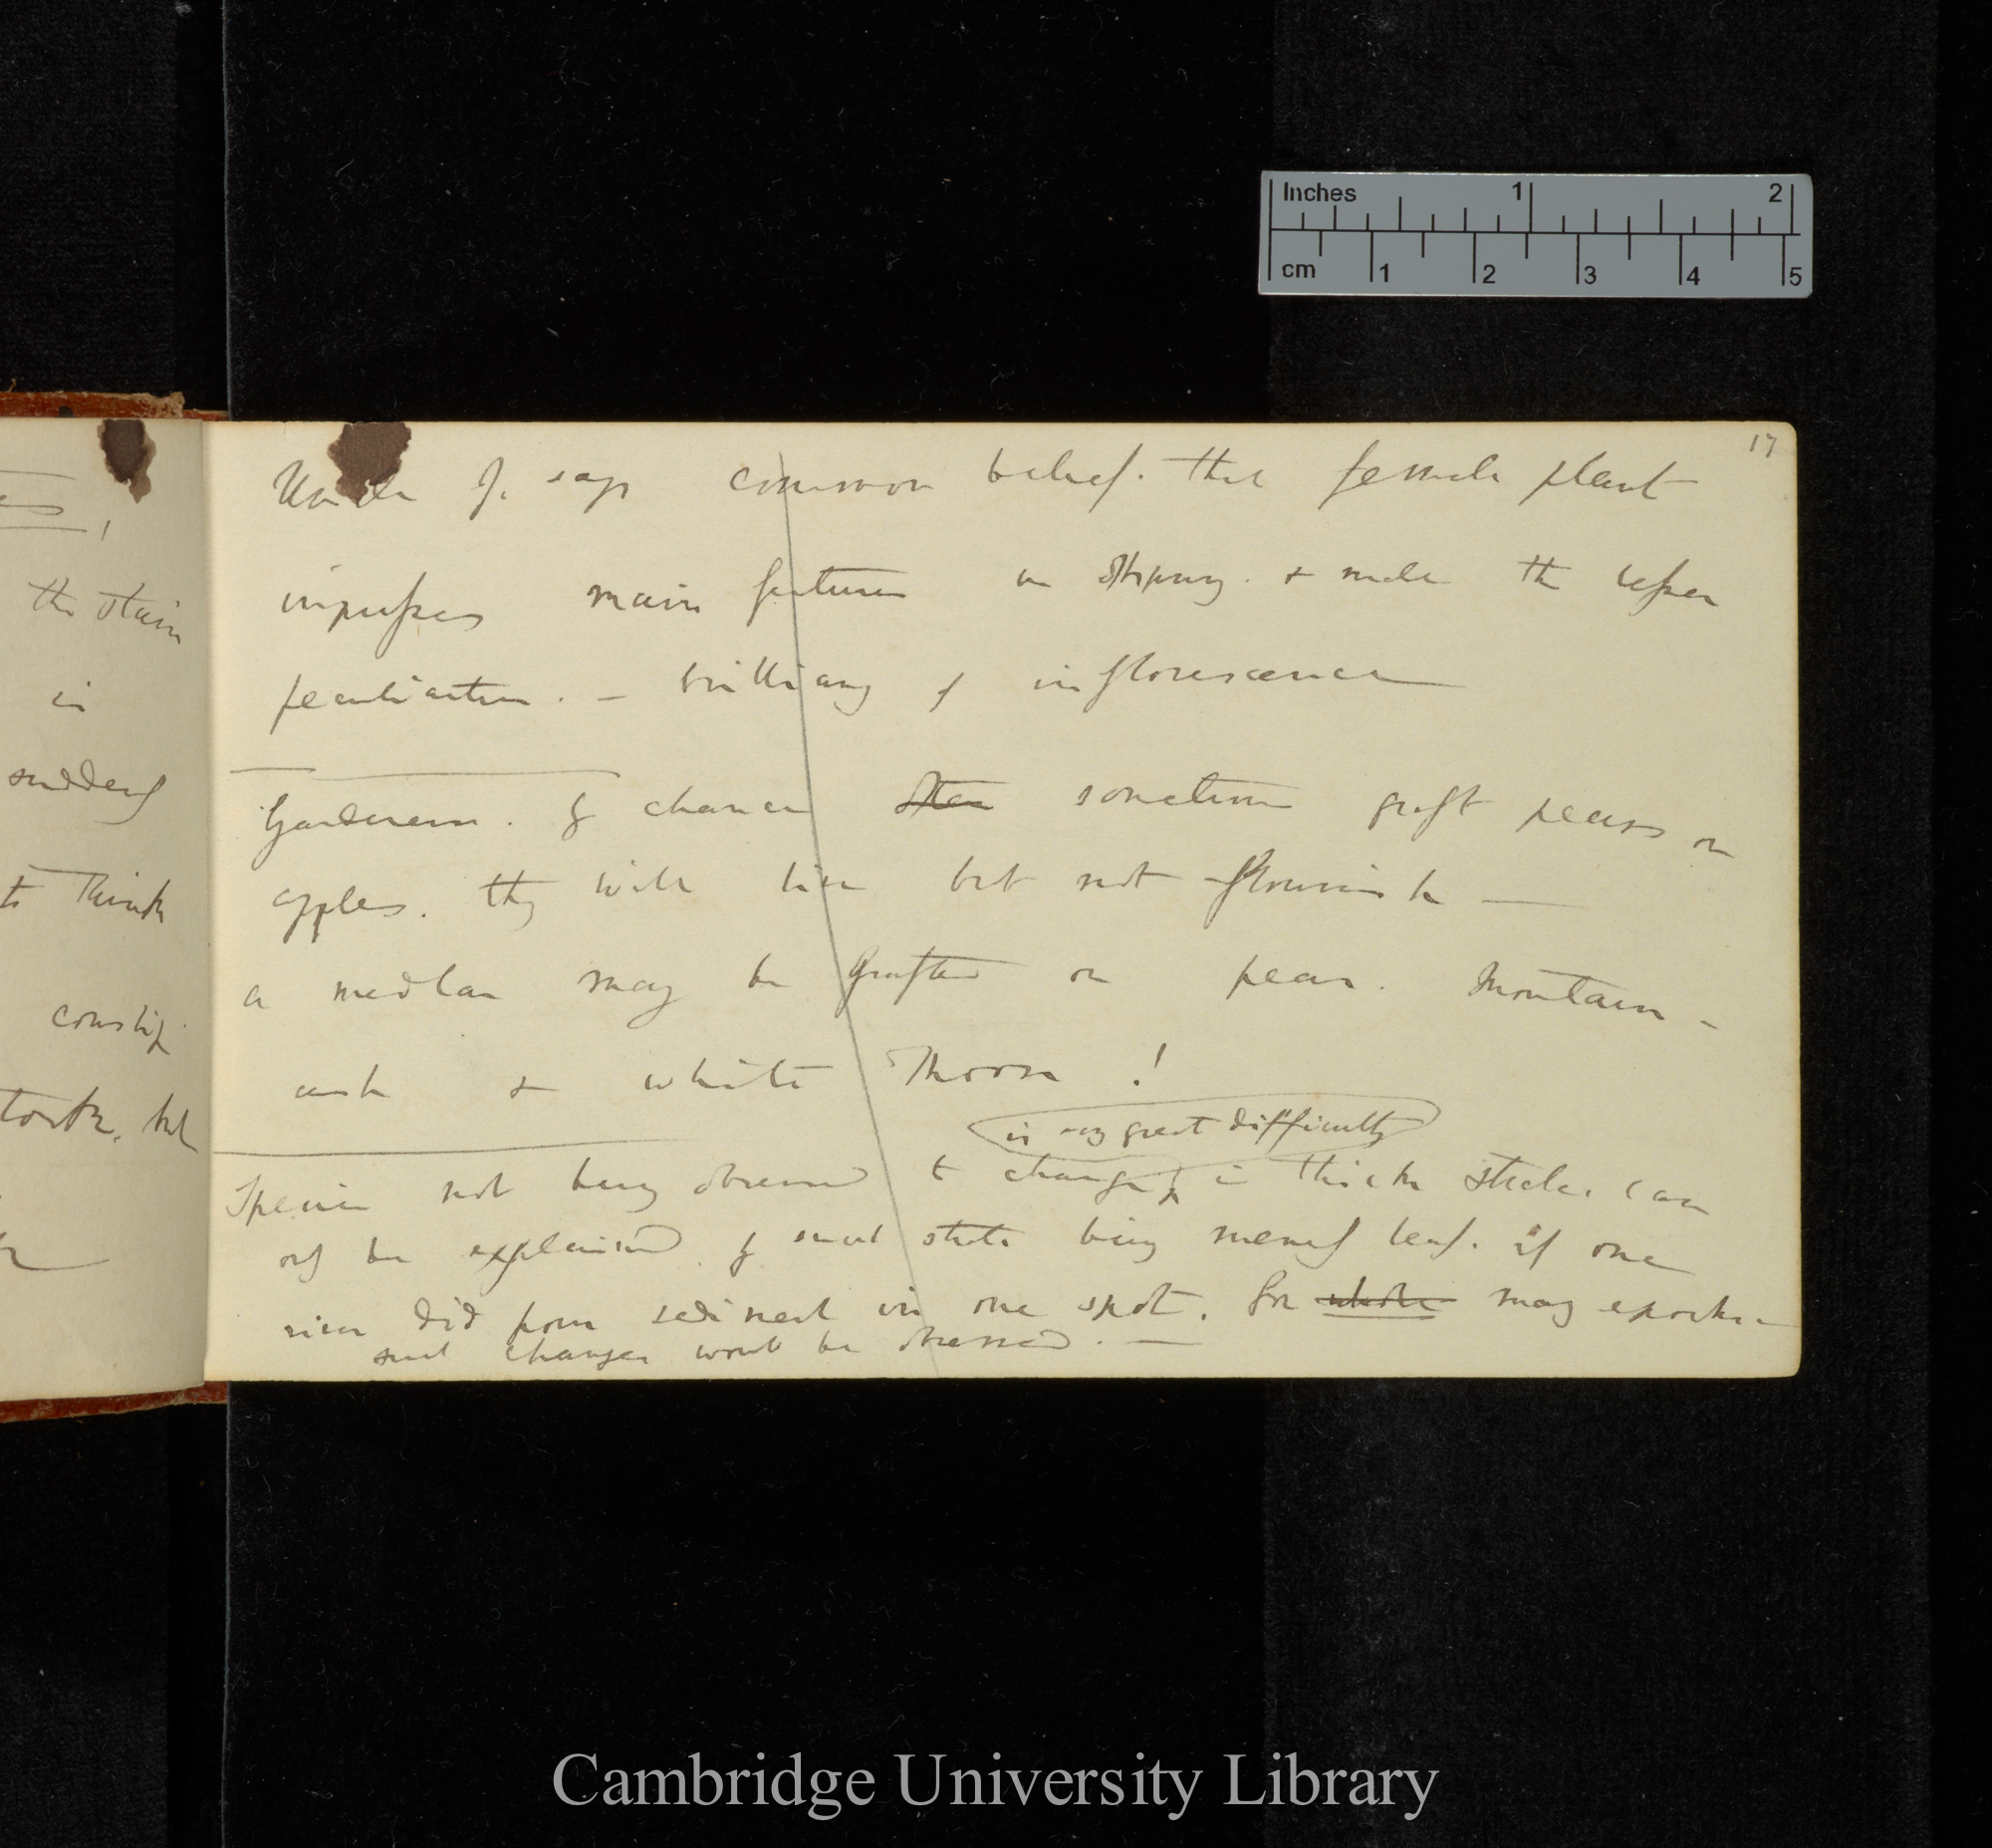 Inches 1 2
cm 1 2 3 4 5
17
Uncle J. says common belief. that female plant
impresses main features in offspring. & male the lesser
peculiarities. — brilliancy of inflorescence
Gardeners. by chance often sometimes graft pears on
apples. they will live but not flourish —
a medlar may be grafted on pear. Mountain -
ash & white Thorn !
is very great difficulty
Species not being observed to change in thick strata. can
only be explained by such strata being merely leaf. if one
river did pour sediment in one spot. for whole many epochs —
such changes would be observed. —
the stain
in
suddenly
to Think
but
Cambridge University Library